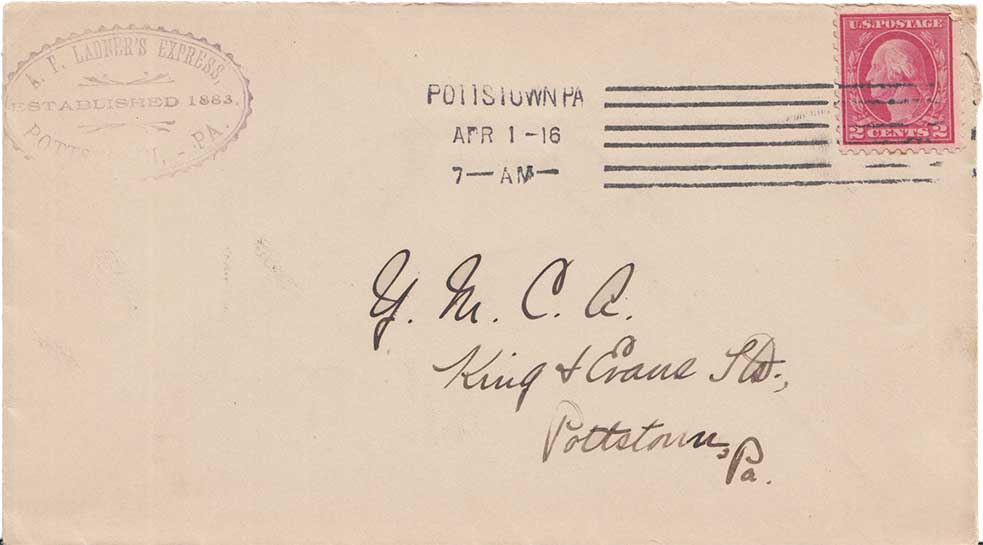 A. F. LADNER'S EXPRESS,
ESTABLISHED 1883.
PA.
POTTSTOWN PA
APR 1 - 16
7 — AM —
U.S. POSTAGE
2 CENTS 2
Y. M. C. A.
King & Evans Sts.,
Pottstown,
Pa.